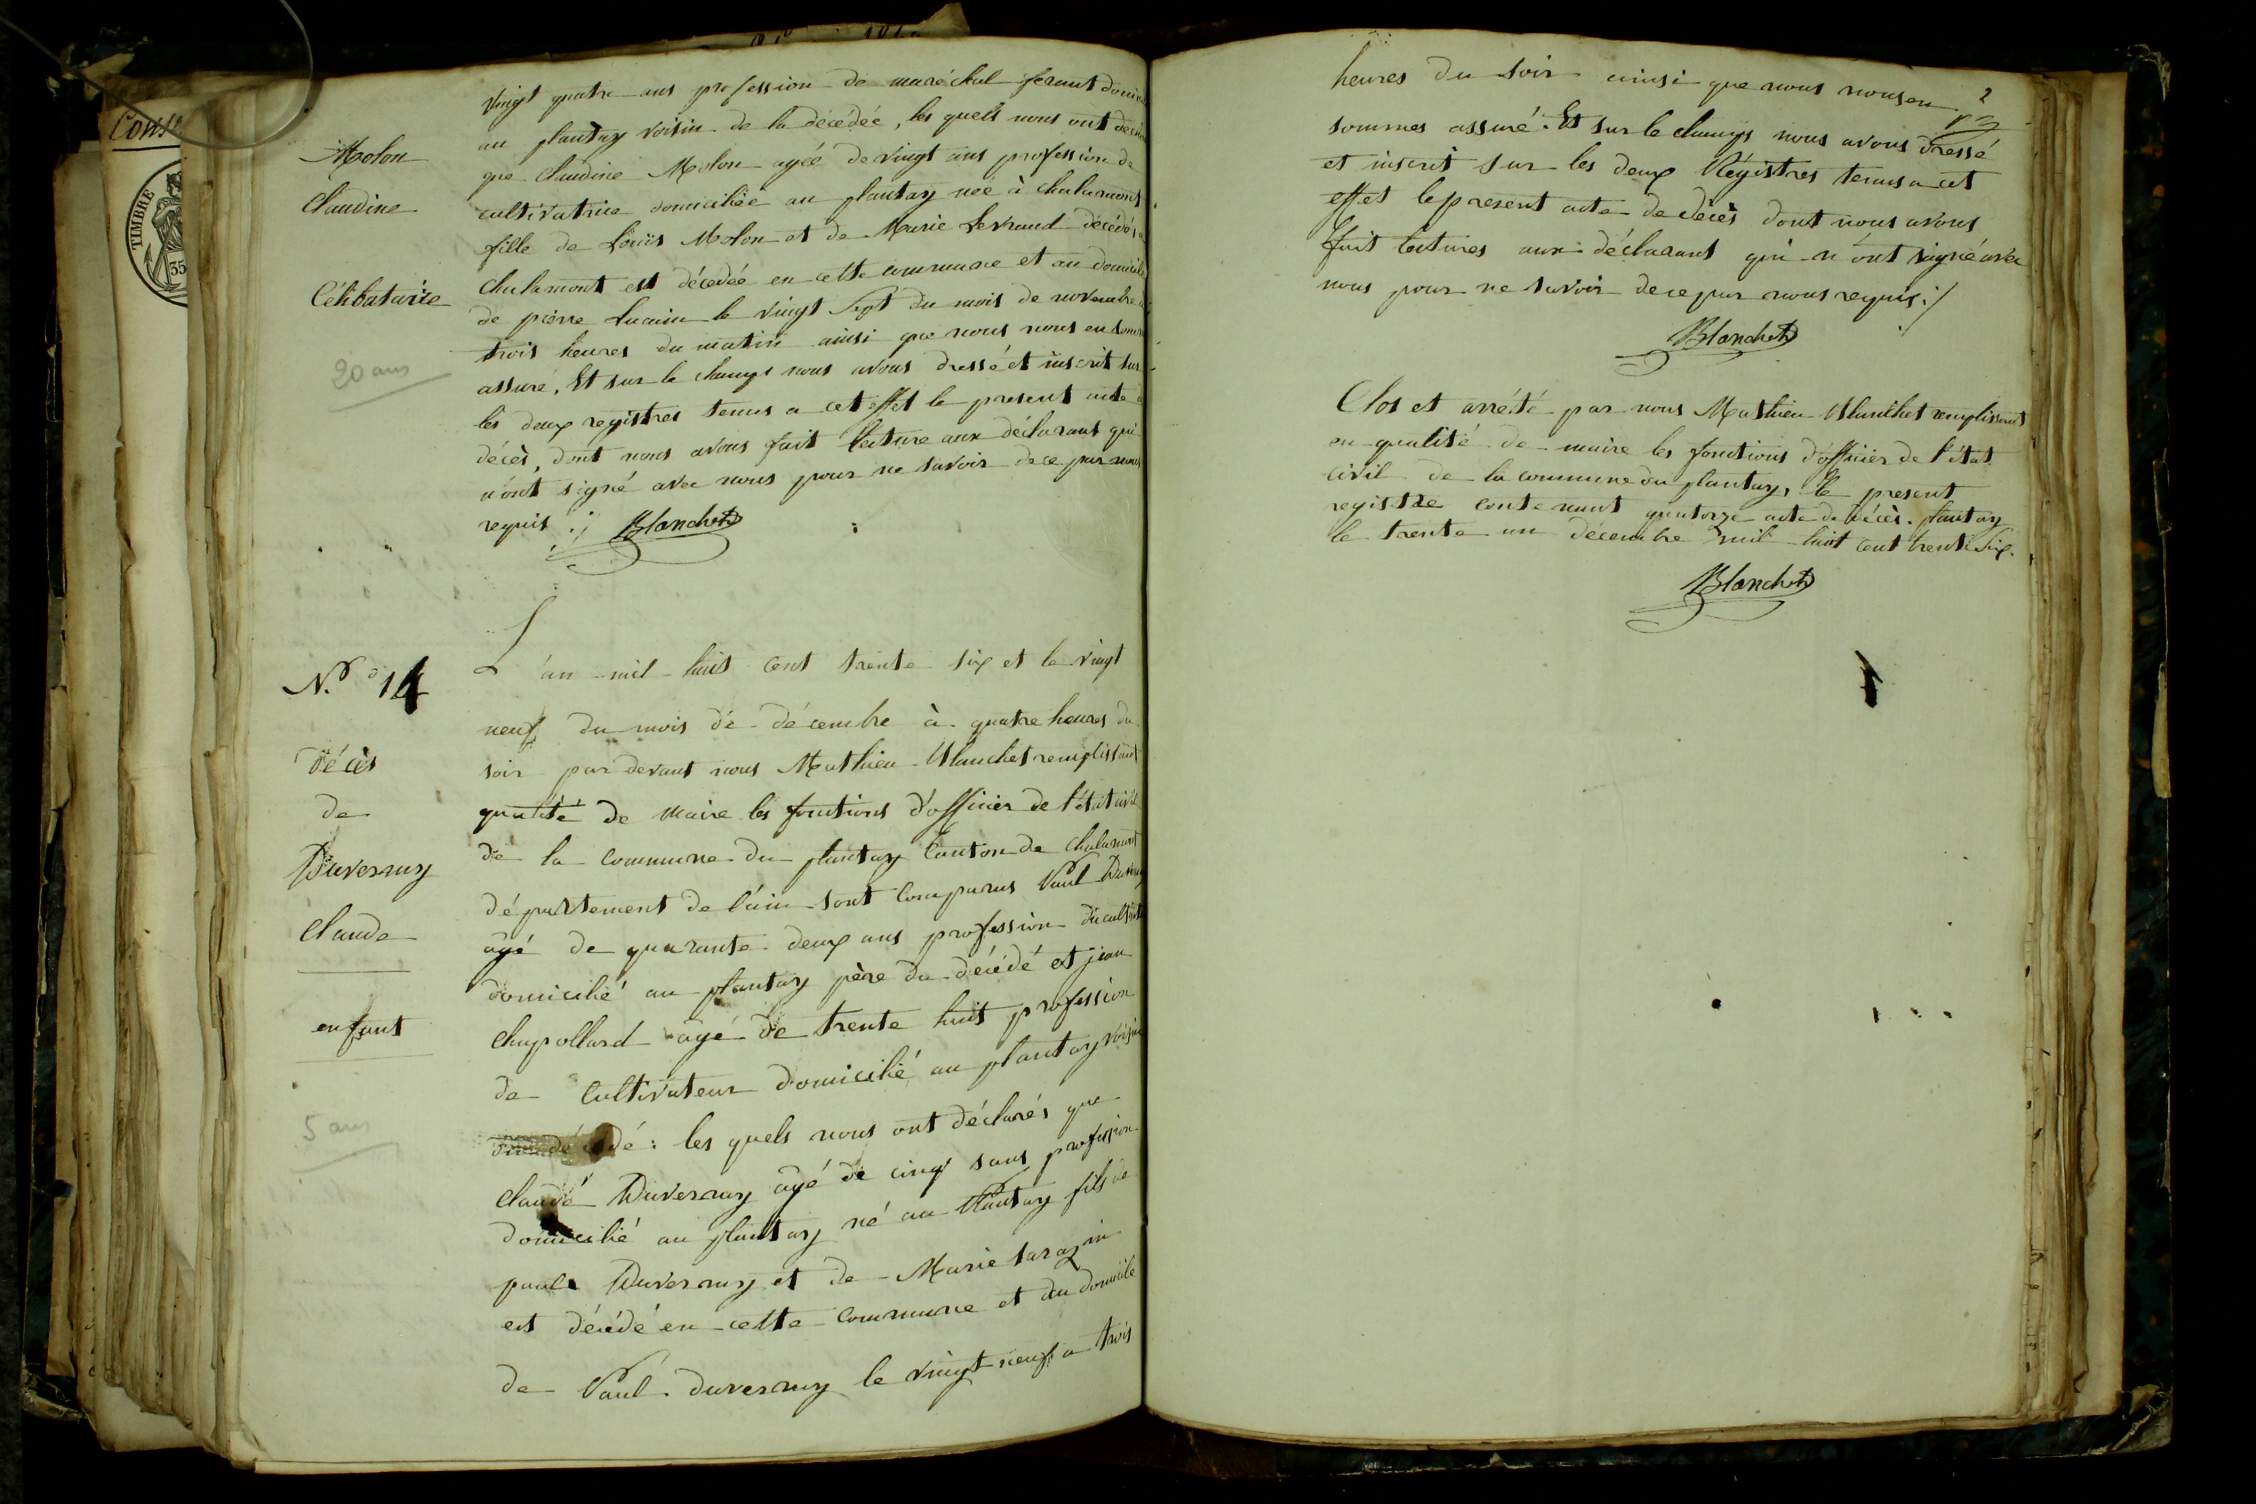 Cons
TIMBRE
35
Molon
Claudine
Célibataire
20 ans
vingt quatre ans profession de maréchal ferant domici
au plantay voisin de la décédée, les quels nous ont décla
que Claudine Molon agée de vingt ans profession de
cultivatrice domiciliée au plantay née à Chalamont
fille de Louis Molon et de Marie Levraud décédés a
Chalamont est décédée en cette commune et au domicile
de pierre Lucain le vingt sept du mois de novembre
trois heures du matin ainsi que nous nous en somm
assuré, Et sur le champs nous avons dressé et inscrit sur
les deux registres tenus a cet effet le present acte d
décès, dont nous avons fait lecture aux déclarant qui
n'ont signé avec nous pour ne savoir de ce par nous
requis :/ Blanchet
N.º 14
décès
de
Duvernay
Claude
enfant
5 ans
L'an mil huit cent trente six et le vingt
neuf du mois de décembre à quatre heures du
soir par devant nous Mathieu Blanchet remplissant
qualité de maire les fonctions d'officier de l'état civil
de la commune du plantay Canton de Chalamont
département de l'ain sont comparus Paul Duvernay
agé de quarante deux ans profession de cultivat
domicilié au plantay père du décédé et jean
Chapolland agé de trente huit profession
de Cultivateur domicilié au plantay voisin
du décédé : les quels nous ont déclarés que
Claude Duvernay agé de cinq sans profession
domicilié au plantay né au Plantay fils de
paul Duvernay et de Marie Sarazin
est décédé en cette commune et au domicile
de Paul Duvernay le vingt neuf a trois
heures du soir ainsi que nous nous en
sommes assuré. Et sur le champs nous avons dressé
et inscrit sur les deux Régistres tenus a cet
effet le present acte de décès dont nous avons
fait lectures aux déclarant qui n'ont signé avec
nous pour ne savoir de ce par nous requis :/
Blanchet
Clos et arrété par nous Mathieu Blanchet remplissant
en qualité de maire les fonctions d'officier de l'état
civil de la commune du plantay, le present
registre contenant quatorze acte de décès. plantay
le trente un décembre mil huit cent trente six.
Blanchet